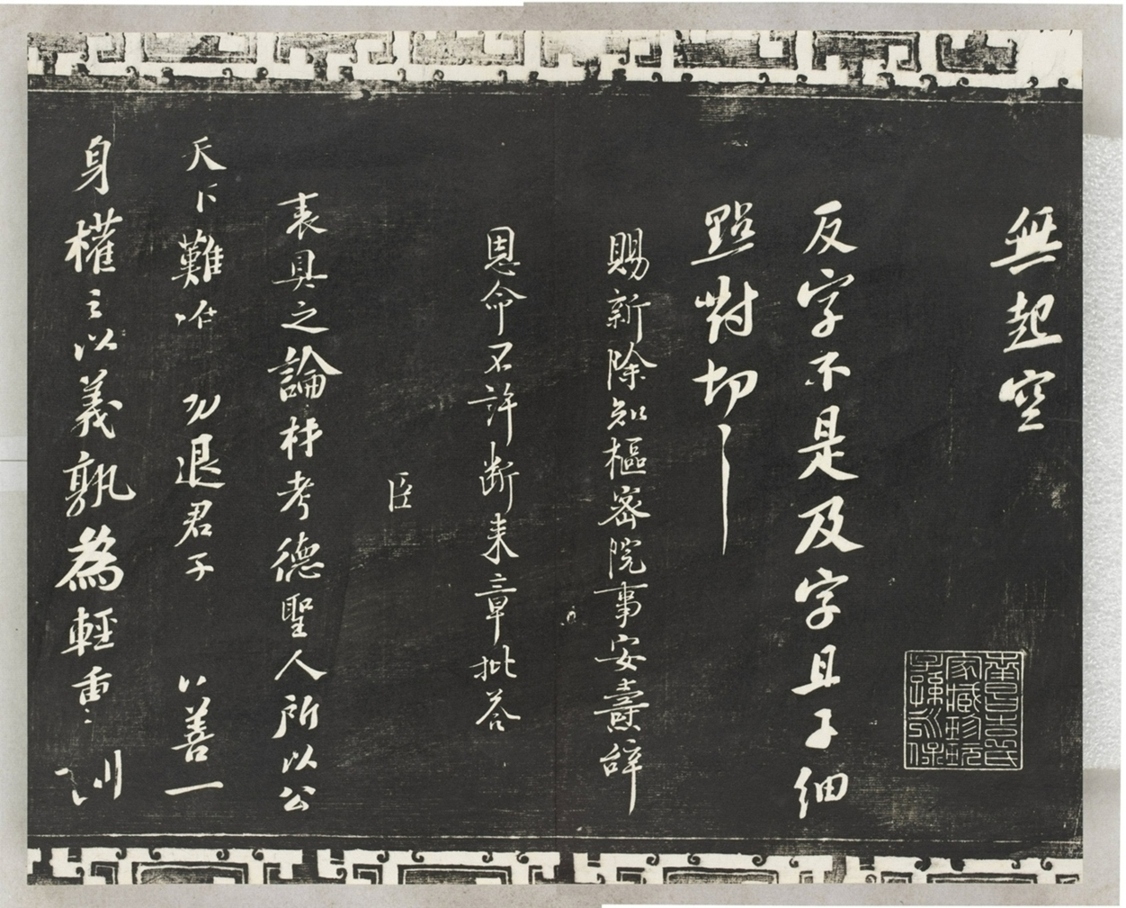 無起空
反字不是及字且子細
點對切〻
賜新除知樞密院事安燾辭
恩命不許断来章批荅
臣
表具之論枰考德聖人所以公
天下難唯 勿退君子 以善一
身權之以義孰為輕重〻 訓